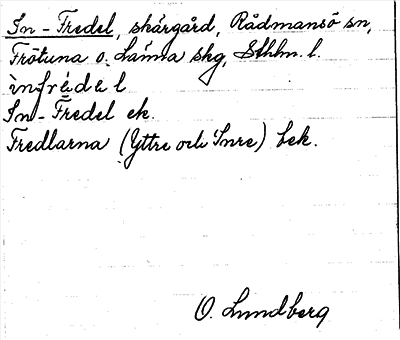 In-Fredel, skärgård, Rådmansö sn,
Frötuna o. Länna skg, Sthlm. l.
ìnfréde l
In-Fredel ek.
Fredlarna (Yttre och Inre) bek.
O. Lundberg